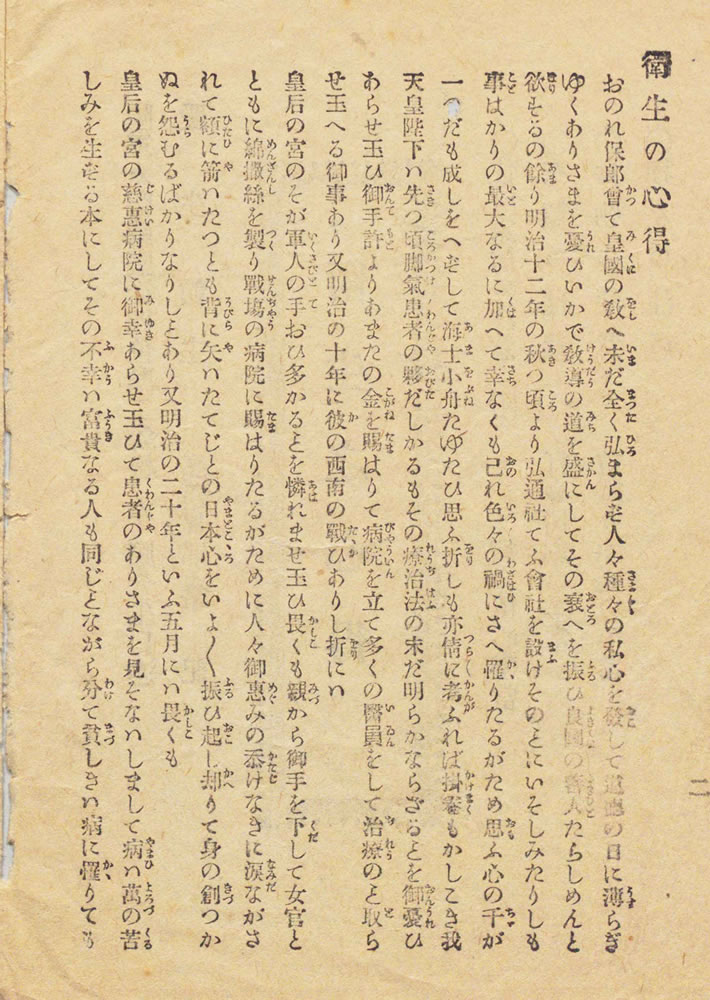 衛生の心得
おのれ保郎曾て皇國の敎へ未だ全く弘まらず人々種々の私心を發して道德の日に薄らぎ
ゆくありさまを憂ひいかで敎導の道を盛にしてその衰へを振ひ良國の善人たらしめんと
欲するの餘り明治十二年の秋つ頃より弘通社てふ會社を設けそのことにいそしみたりしも
事はかりの最大なるに加へて幸なくも己れ色々の禍にさへ罹りたるがため思ふ心の千が
一つだも成しをへずして海士小舟たゆたひ思ふ折しも亦倩に考ふれば掛巻もかしこき我
天皇陛下ハ先つ頃脚氣患者の夥だしかるもその療治法の未だ明らかならざることを御憂ひ
あらせ玉ひ御手許よりあまたの金を賜はりて病院を立て多くの醫員をして治療のこと取ら
せ玉へる御事あり又明治の十年に彼の西南の戰ひありし折にハ
皇后の宮のそが軍人の手おひ多かることを憐れませ玉ひ畏くも親から御手を下して女官と
ともに綿撒絲を製り戰塲の病院に賜はりたるがために人々御惠みの忝けなきに淚ながさ
れて額に箭ハたつとも背に矢ハたてじとの日本心をいよ〱振ひ起し却りて身の創つか
ぬを怨むるばかりなりしとあり又明治の二十年といふ五月にハ畏くも
皇后の宮の慈惠病院に御幸あらせ玉ひて患者のありさまを見そなハしまして病ハ萬の苦
しみを生ずる本にしてその不幸ハ富貴なる人も同じことながら分て貧しきハ病に罹りても
二